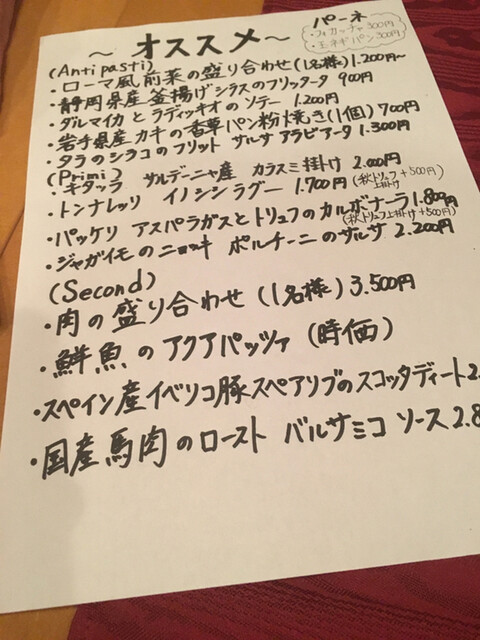 ~ オススメ ~
パーネ
・フォカッチャ 300円
・玉ネギパン 300円
(Antipasti)
・ローマ風前菜の盛り合わせ (1名様) 1.200円~
・静岡県産釜揚げシラスのフリッタータ 900円
・ダルマイカとラディッキオのソテー 1.200円
・岩手県産カキの香草パン粉焼き (1個) 700円
・タラのシラコのフリット サルサ アラビアータ 1.300円
(Primi)
・キタッラ サルデーニャ産 カラスミ掛け 2.000円
・トンナレッリ イノシシラグー 1.700円 (秋トリュフ上掛け +500円)
・パッケリ アスパラガスとトリュフのカルボナーラ 1.800円
(秋トリュフ上掛け+500円)
・ジャガイモのニョッキ ポルチーニのサルサ 2.200円
(Second)
・肉の盛り合わせ (1名様) 3.500円
・鮮魚のアクアパッツァ (時価)
・スペイン産イベリコ豚スペアリブのスコッタディート 2.
・国産馬肉のロースト バルサミコ ソース 2.8